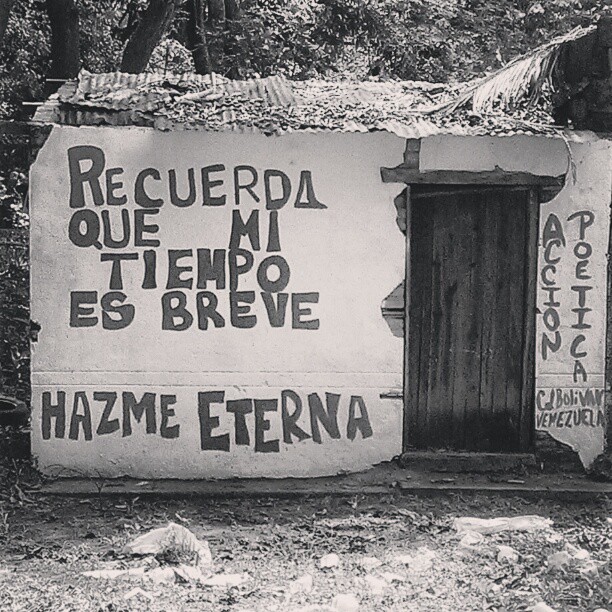 RECUERDA
QUE MI
TIEMPO
ES BREVE
HAZME ETERNA
ACCIÓN
POETICA
CD BOLIVAR
VENEZUELA